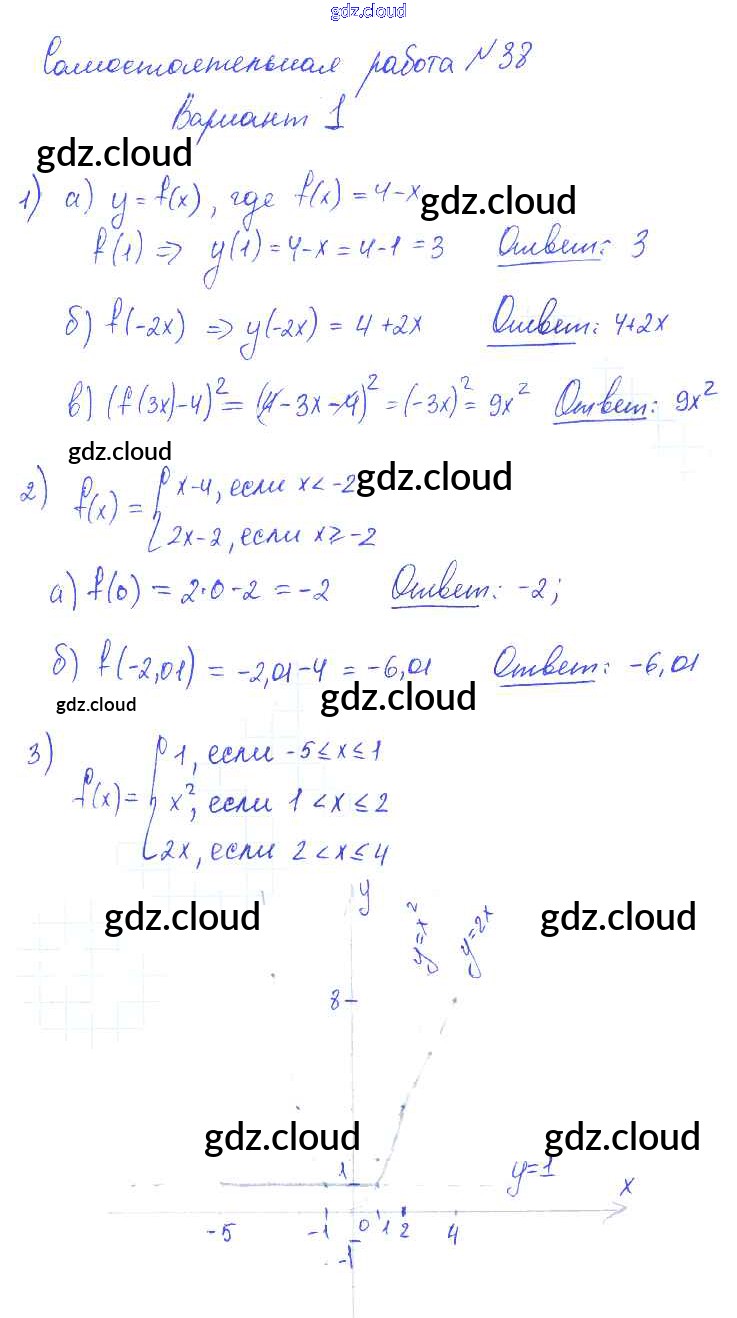 gdz.cloud
Самостоятельная работа №38
Вариант 1
gdz.cloud
1) а) y = f(x), где f(x) = 4-x gdz.cloud
f(1) => y(1) = 4-x = 4-1 = 3 Ответ: 3
б) f(-2x) => y(-2x) = 4+2x Ответ: 4+2x
в) (f(3x)-4)² = (4-3x-4)² = (-3x)² = 9x² Ответ: 9x²
gdz.cloud
2) f(x) = { x-4, если x < -2 gdz.cloud
2x-2, если x ≥ -2
а) f(0) = 2·0-2 = -2 Ответ: -2;
б) f(-2,01) = -2,01-4 = -6,01 Ответ: -6,01
gdz.cloud gdz.cloud
3) f(x) = { 1, если -5 ≤ x ≤ 1
x², если 1 < x ≤ 2
2x, если 2 < x ≤ 4
y
gdz.cloud y=x² y=2x gdz.cloud
8
gdz.cloud gdz.cloud
1 y=1
x
-5 -1 0 1 2 4
-1